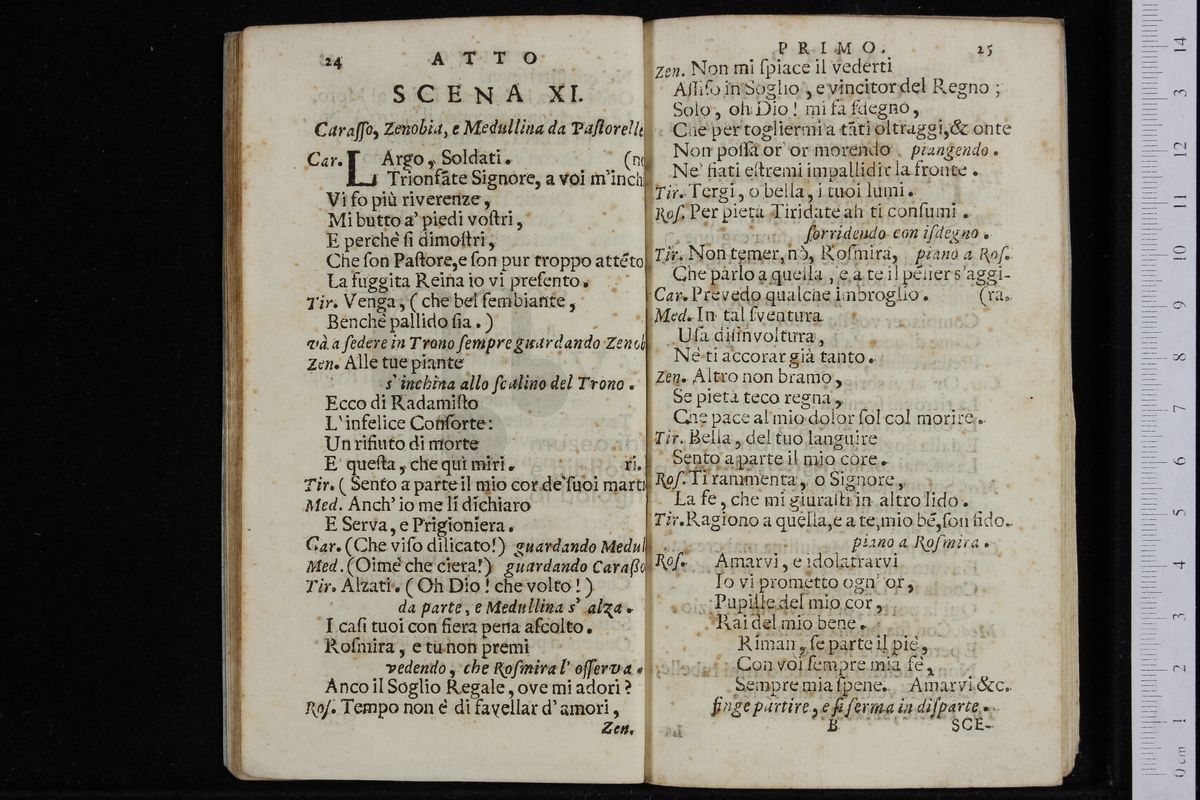 24 ATTO
SCENA XI.
Caraſſo, Zenobia, e Medullina da Paſtorelle
Car. LArgo, Soldati. (no
Trionfate Signore, a voi m'inchi
Vi fo più riverenze,
Mi butto a' piedi voſtri,
E perchè ſi dimoſtri,
Che ſon Paſtore, e ſon pur troppo attẽto
La fuggita Reina io vi preſento.
Tir. Venga, (che bel ſembiante,
Benchè pallido ſia.)
và a ſedere in Trono ſempre guardando Zenob
Zen. Alle tue piante
s'inchina allo ſcalino del Trono.
Ecco di Radamiſto
L'infelice Conſorte:
Un rifiuto di morte
E' queſta, che quì miri. ri.
Tir. (Sento a parte il mio cor de' ſuoi marti
Med. Anch'io me li dichiaro
E Serva, e Prigioniera.
Car. (Che viſo dilicato!) guardando Medul
Med. (Oimè che ciera!) guardando Caraſſo
Tir. Alzati. (Oh Dio! che volto!)
da parte, e Medullina s'alza.
I caſi tuoi con fiera pena aſcolto.
Roſmira, e tu non premi
vedendo, che Roſmira l'oſſerva.
Anco il Soglio Regale, ove mi adori?
Roſ. Tempo non è di favellar d'amori,
Zen.
PRIMO. 25
Zen. Non mi ſpiace il vederti
Aſſiſo in Soglio, e vincitor del Regno;
Solo, oh Dio! mi fa ſdegno,
Che per togliermi a tãti oltraggi, & onte
Non poſſa or' or morendo piangendo.
Ne' fiati eſtremi impallidir la fronte.
Tir. Tergi, o bella, i tuoi lumi.
Roſ. Per pietà Tiridate ah ti conſumi.
ſorridendo con iſdegno.
Tir. Non temer, nò, Roſmira, piano a Roſ.
Che parlo a quella, e a te il pẽſier s'aggi-
Car. Prevedo qualche imbroglio. (ra.
Med. In tal ſventura
Uſa diſinvoltura,
Nè ti accorar già tanto.
Zen. Altro non bramo,
Se pietà teco regna,
Che pace al mio dolor ſol col morire.
Tir. Bella, del tuo languire
Sento a parte il mio core.
Roſ. Ti rammenta, o Signore,
La fe, che mi giuraſti in altro lido.
Tir. Ragiono a quella, e a te, mio bẽ, ſon fido.
piano a Roſmira.
Roſ. Amarvi, e idolatrarvi
Io vi prometto ogn'or,
Pupille del mio cor,
Rai del mio bene.
Riman, ſe parte il piè,
Con voi ſempre mia fè,
Sempre mia ſpene. Amarvi &c.
finge partire, e ſi ferma in diſparte.
B SCE-
0 cm 1 2 3 4 5 6 7 8 9 10 11 12 3 14